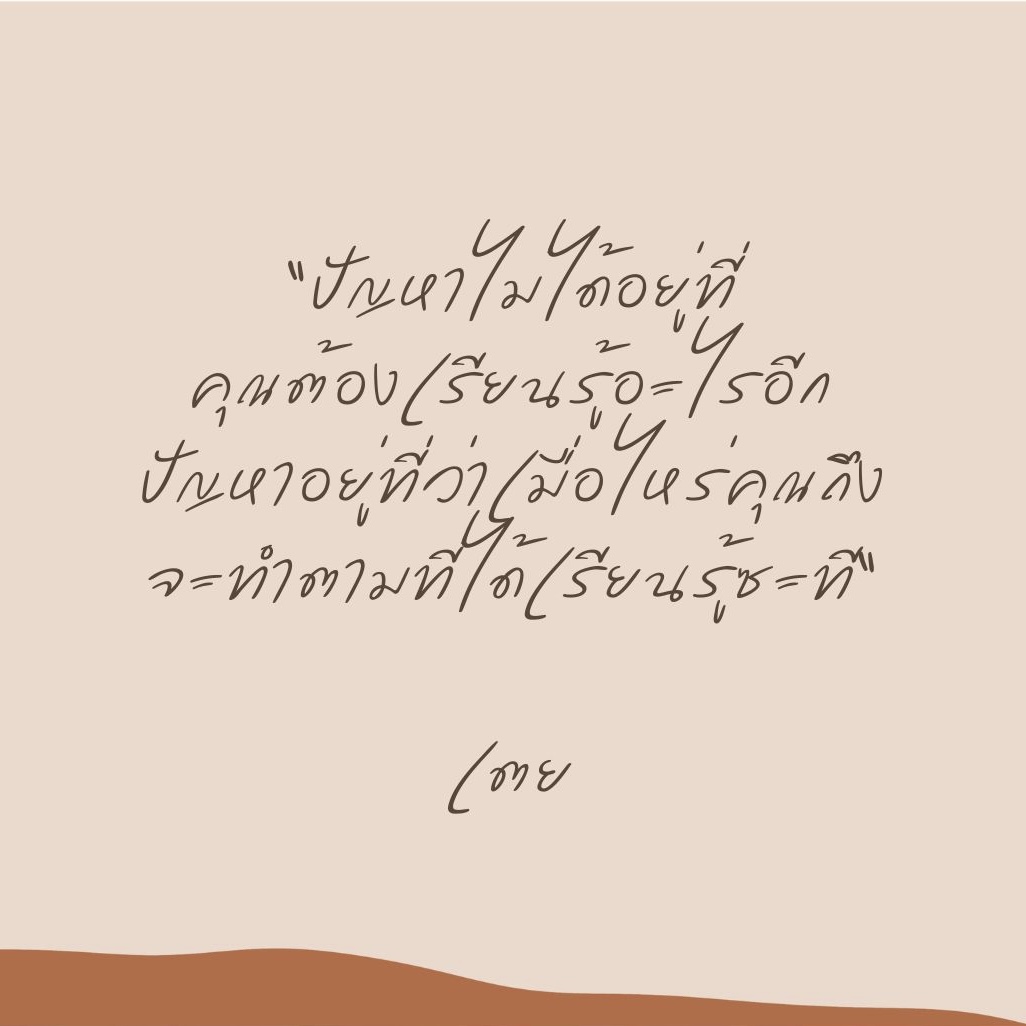 "ปัญหาไม่ได้อยู่ที่
คุณต้องเรียนรู้อะไรอีก
ปัญหาอยู่ที่ว่าเมื่อไหร่คุณถึง
จะทำตามที่ได้เรียนรู้ซะที"
เตย